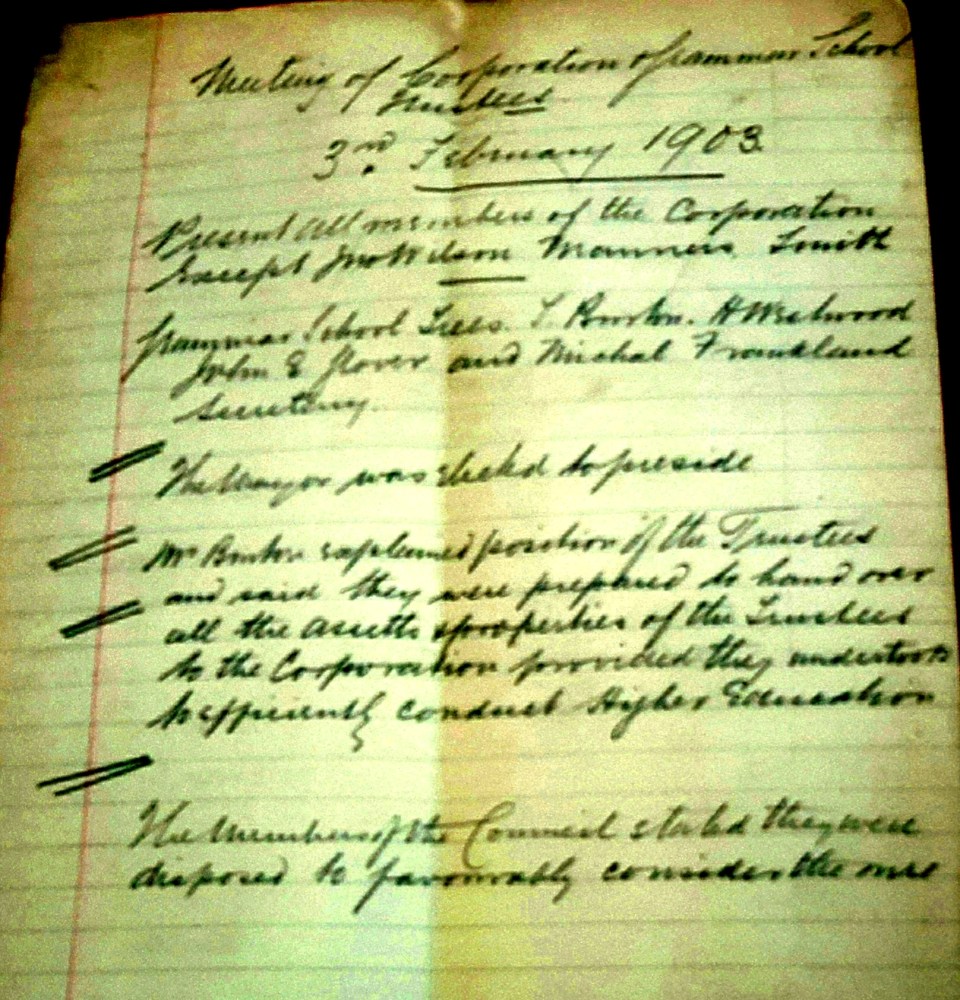 Meeting of Corporation Grammar School
Trustees
3rd February 1903
Present all members of the Corporation
Except Jno Wilson Manners Smith
Grammar School Trees. T. Burton. H Westwood
John E Glover and Michal Frankland
Secretary.
The Mayor was elected to preside
Mr Burton explained position of the Trustees
and said they were prepared to hand over
all the assetts & properties of the Trustees
to the Corporation provided they undertook
to efficiently conduct Higher Education
The Members of the Council stated they were
disposed to favourably consider the